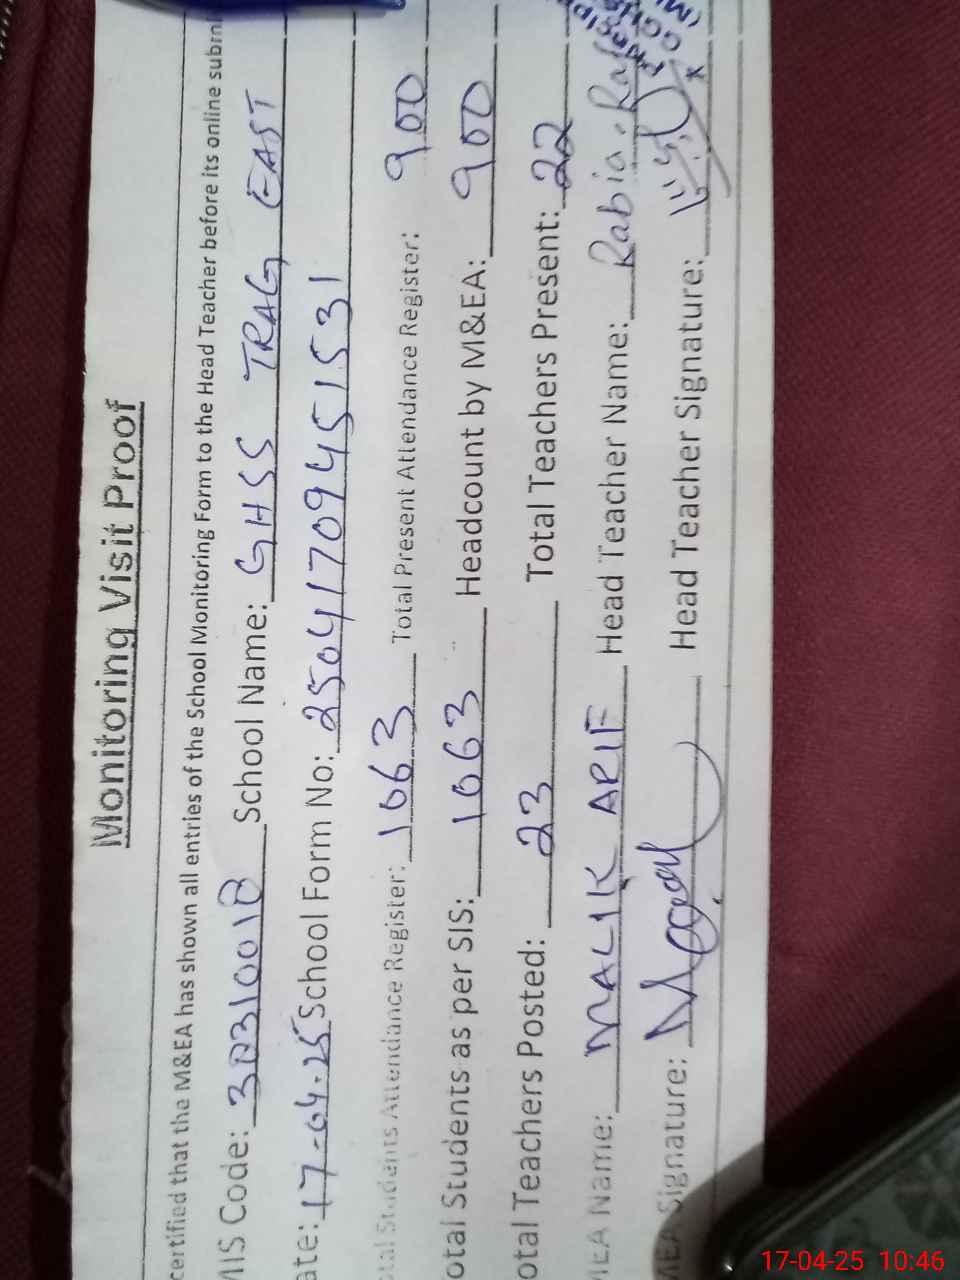 Monitoring Visit Proof
certified that the M&EA has shown all entries of the School Monitoring Form to the Head Teacher before its online
MIS Code: School Name: GHSS TRAG EAST
ate: 17-04-25 School Form No: 25041709451531
otal Students Attendance Register: 1063 Total Present Attendance Register: 900
otal Students as per SIS: 1063 Headcount by M&EA: 900
otal Teachers Posted: 23 Total Teachers Present: 22
MEA Name: MALIK ARIF Head Teacher Name: Rabia
MEA Signature: Head Teacher Signature:
17-04-25 10:46